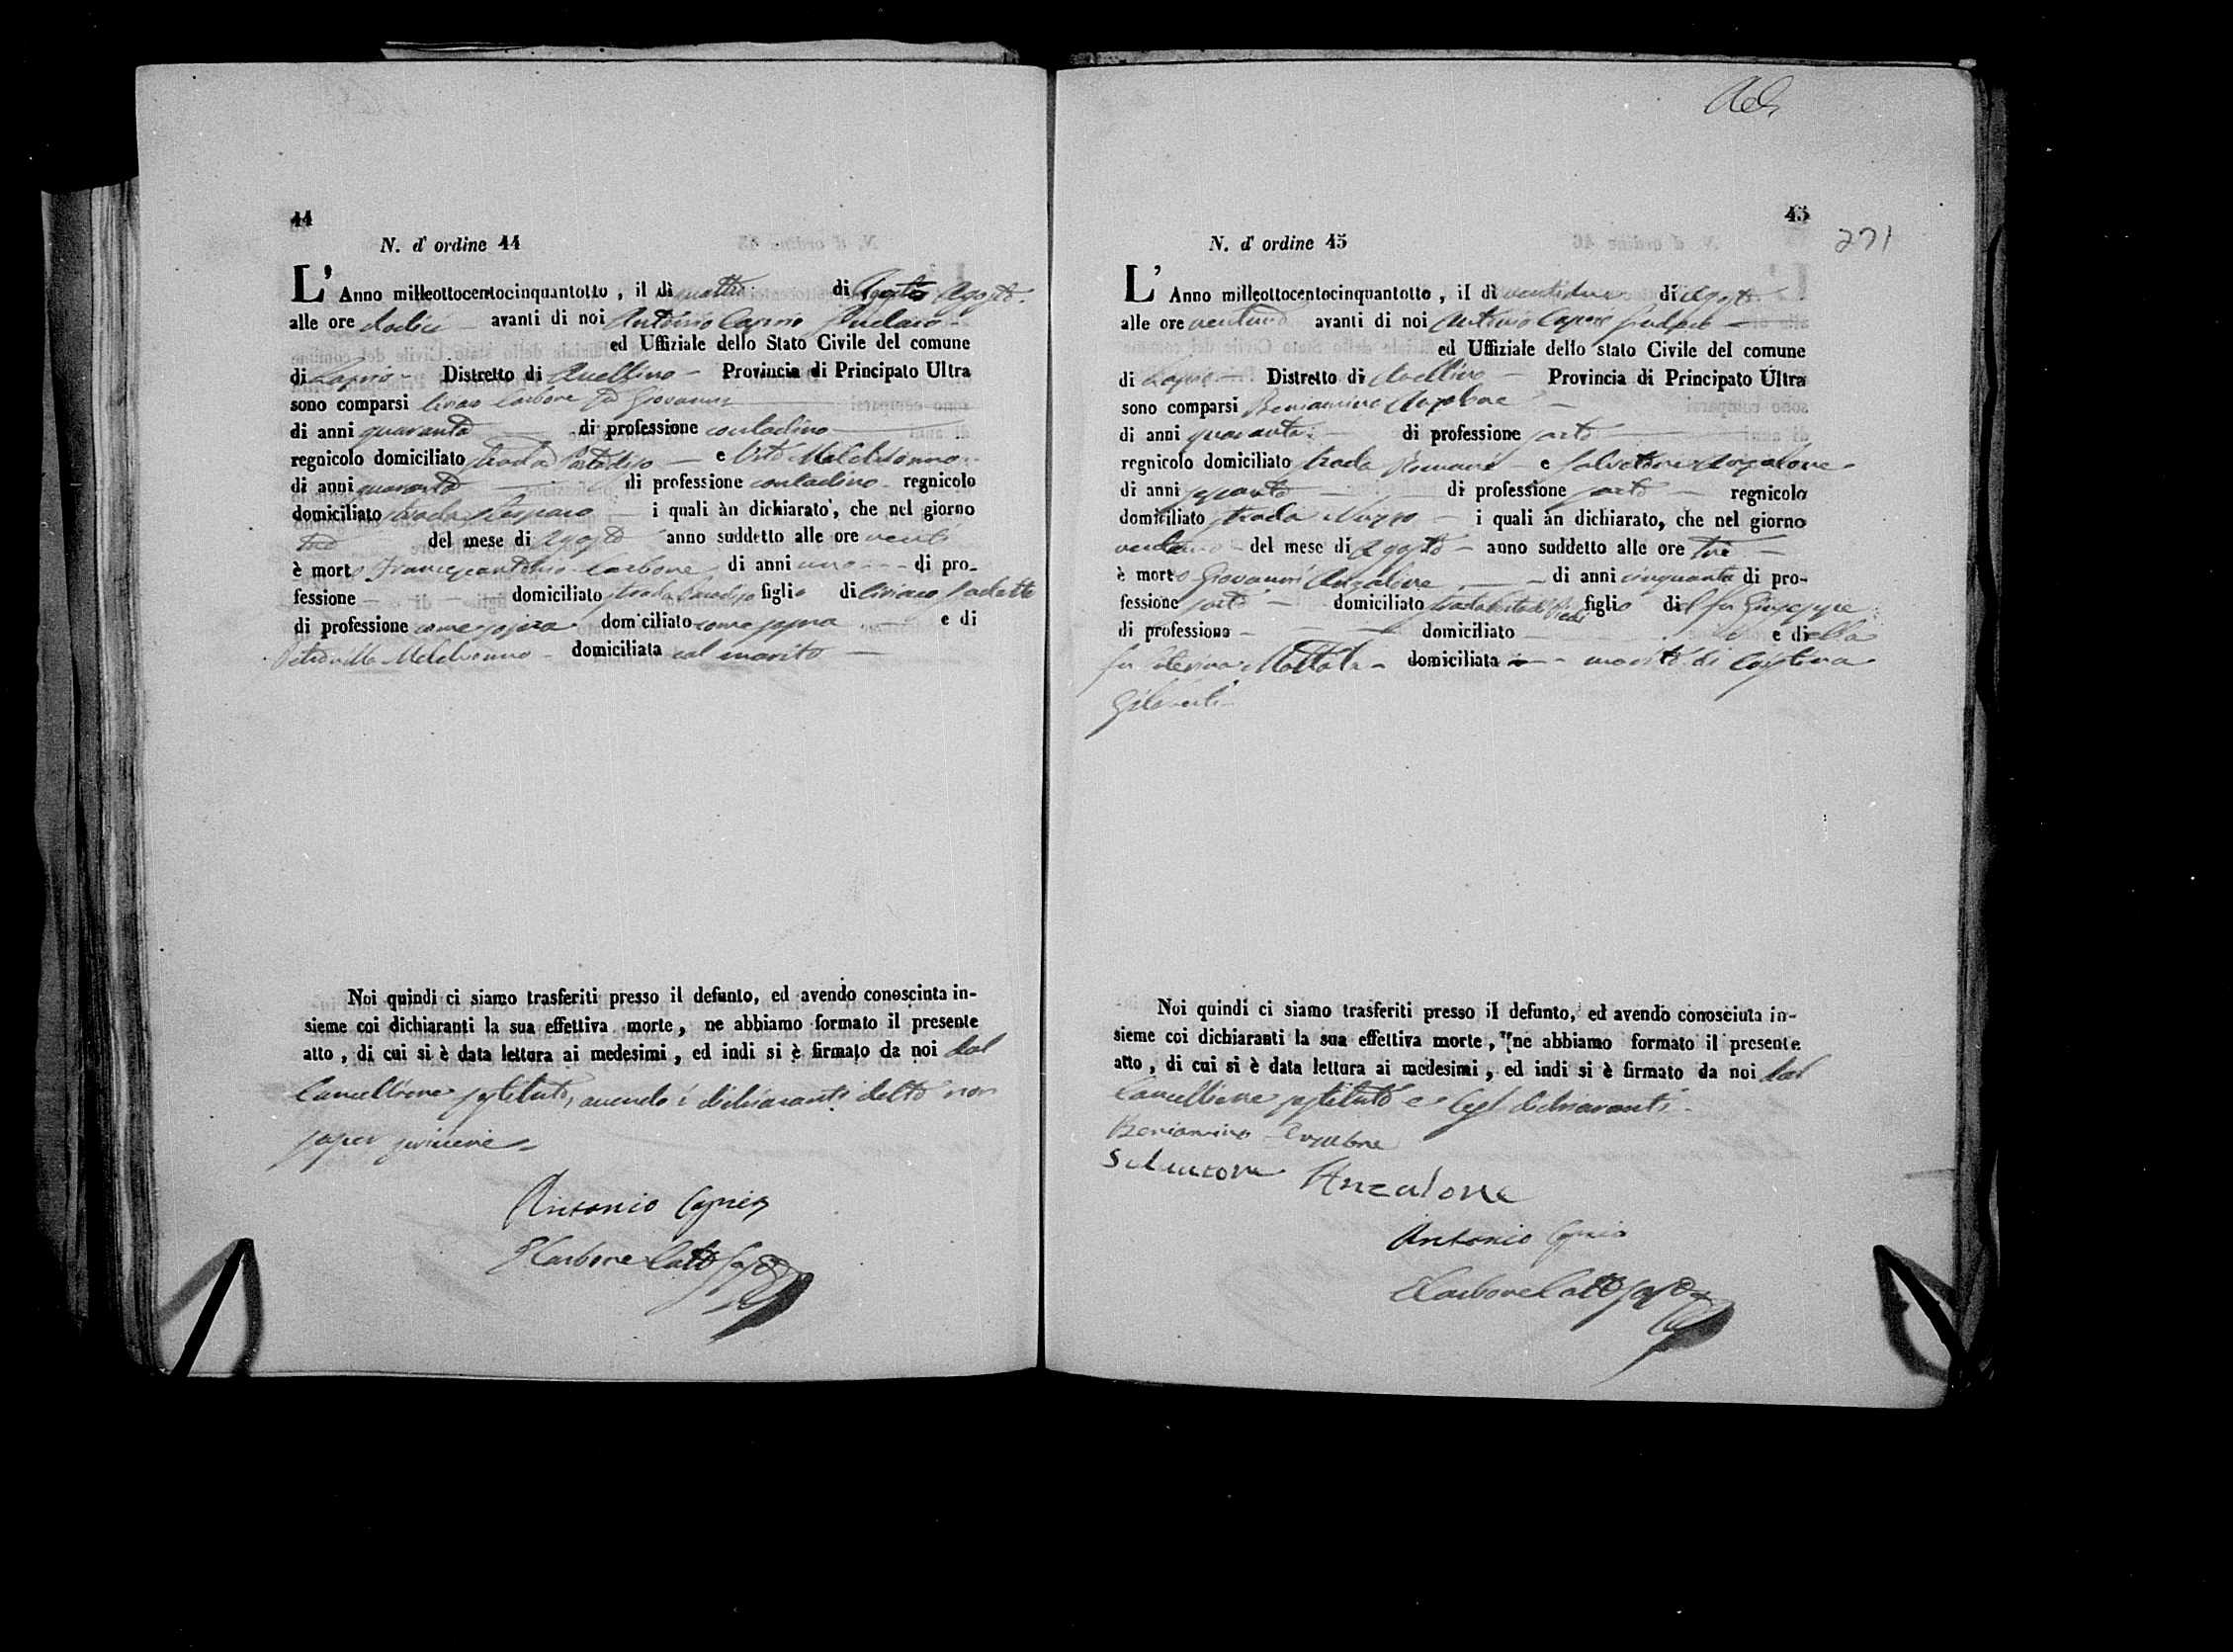 44
N. d' ordine 44
L' Anno milleottocentocinquantotto, il dì quattro di Agosto Agosto
alle ore dodici avanti di noi Antonio Caprio Sindaco
ed Uffiziale dello Stato Civile del comune
di Lapio Distretto di Avellino Provincia di Principato Ultra
sono comparsi Ciriaco Carbone fu Giovanni
di anni quaranta di professione contadino
regnicolo domiciliato strada e Vito
di anni quaranta di professione contadino regnicolo
domiciliato strada i quali àn dichiarato, che nel giorno
tre del mese di Agosto anno suddetto alle ore venti
è morto Francescantonio Carbone di anni uno di pro-
fessione domiciliato strada figlio di Ciriaco
di professione come sopra domiciliato come sopra e di
domiciliata col marito
Noi quindi ci siamo trasferiti presso il defunto, ed avendo conosciuta in-
sieme coi dichiaranti la sua effettiva morte, ne abbiamo formato il presente
atto, di cui si è data lettura ai medesimi, ed indi si è firmato da noi dal
Cancelliere sostituto, avendo i dichiaranti detto non
saper scrivere
Antonio Caprio
Carbone
45
271
N. d' ordine 45
L' Anno milleottocentocinquantotto, il dì ventidue di Agosto
alle ore ventuno avanti di noi Antonio Caprio Sindaco
ed Uffiziale dello stato Civile del comune
di Lapio Distretto di Avellino Provincia di Principato Ultra
sono comparsi Beniamino Anzalone
di anni quaranta di professione sarto
regnicolo domiciliato strada e Salvatore Anzalone
di anni sessanta di professione sarto regnicolo
domiciliato strada i quali àn dichiarato, che nel giorno
ventuno del mese di Agosto anno suddetto alle ore tre
è morto Giovanni Anzalone di anni cinquanta di pro-
fessione sarto domiciliato strada figlio del fu Giuseppe
di professione domiciliato e della
fu domiciliata marito di
Giliberti
Noi quindi ci siamo trasferiti presso il defunto, ed avendo conosciuta in-
sieme coi dichiaranti la sua effettiva morte, ne abbiamo formato il presente
atto, di cui si è data lettura ai medesimi, ed indi si è firmato da noi dal
Cancelliere sostituto e dichiaranti
Beniamino Anzalone
Salvatore Anzalone
Antonio Caprio
Carbone